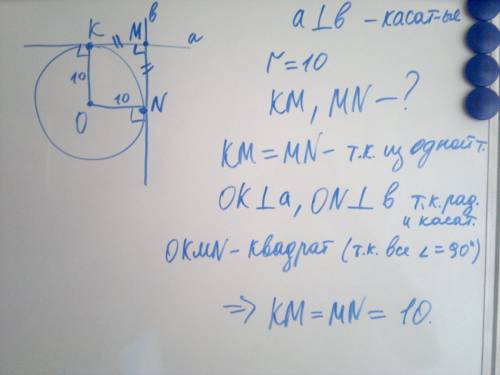 K M в a
10
10 N
O
a ⊥ в – касат-ые
r = 10
KM, MN – ?
KM = MN – т.к. из одной т.
OK ⊥ a, ON ⊥ в т.к. рад.
и касат.
OKMN – квадрат (т.к. все ∠ = 90°)
⇒ KM = MN = 10.